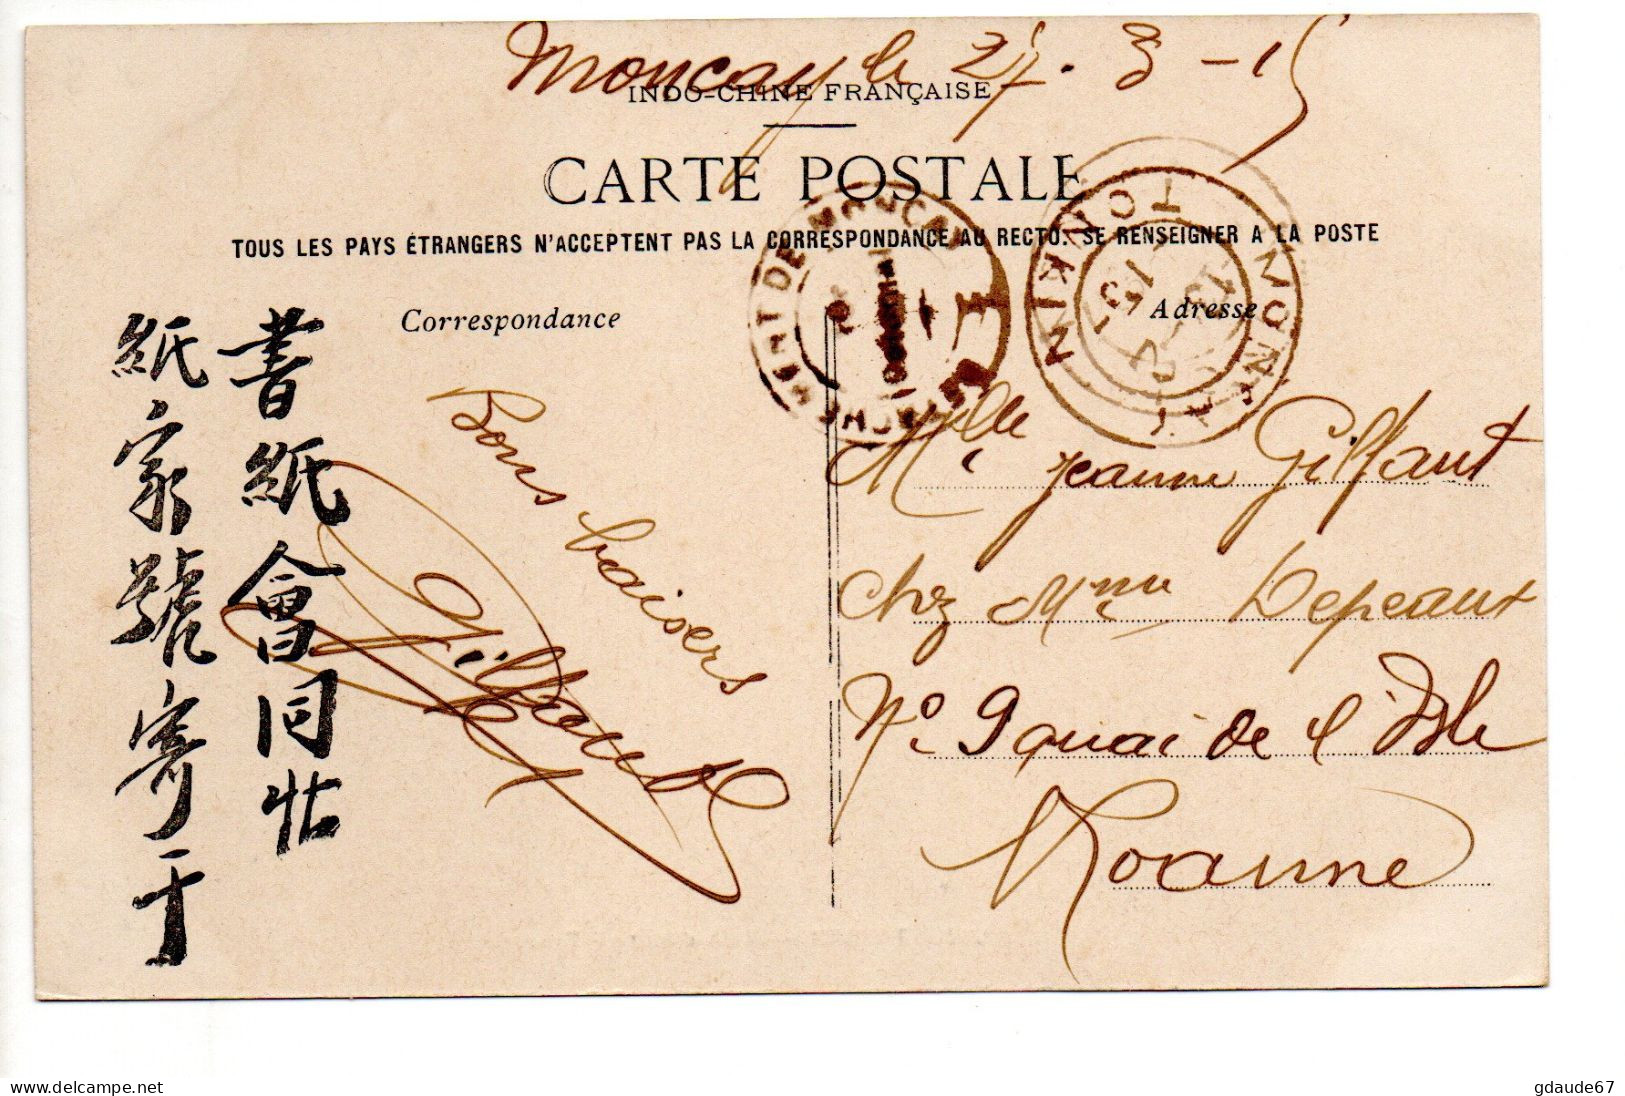 Moncay le 27. 3 - 15
INDO-CHINE FRANÇAISE
CARTE POSTALE
TOUS LES PAYS ÉTRANGERS N'ACCEPTENT PAS LA CORRESPONDANCE AU RECTO. SE RENSEIGNER A LA POSTE
MONCAY
TONKIN
Correspondance
Adresse
書紙會同壯
紙家號寄于
Bons baisers
Gilfaut
Mlle Jeanne Gilfaut
chez Mme Depeaux
No 9 quai de l'Isle
Roanne
www.delcampe.net
gdaude67